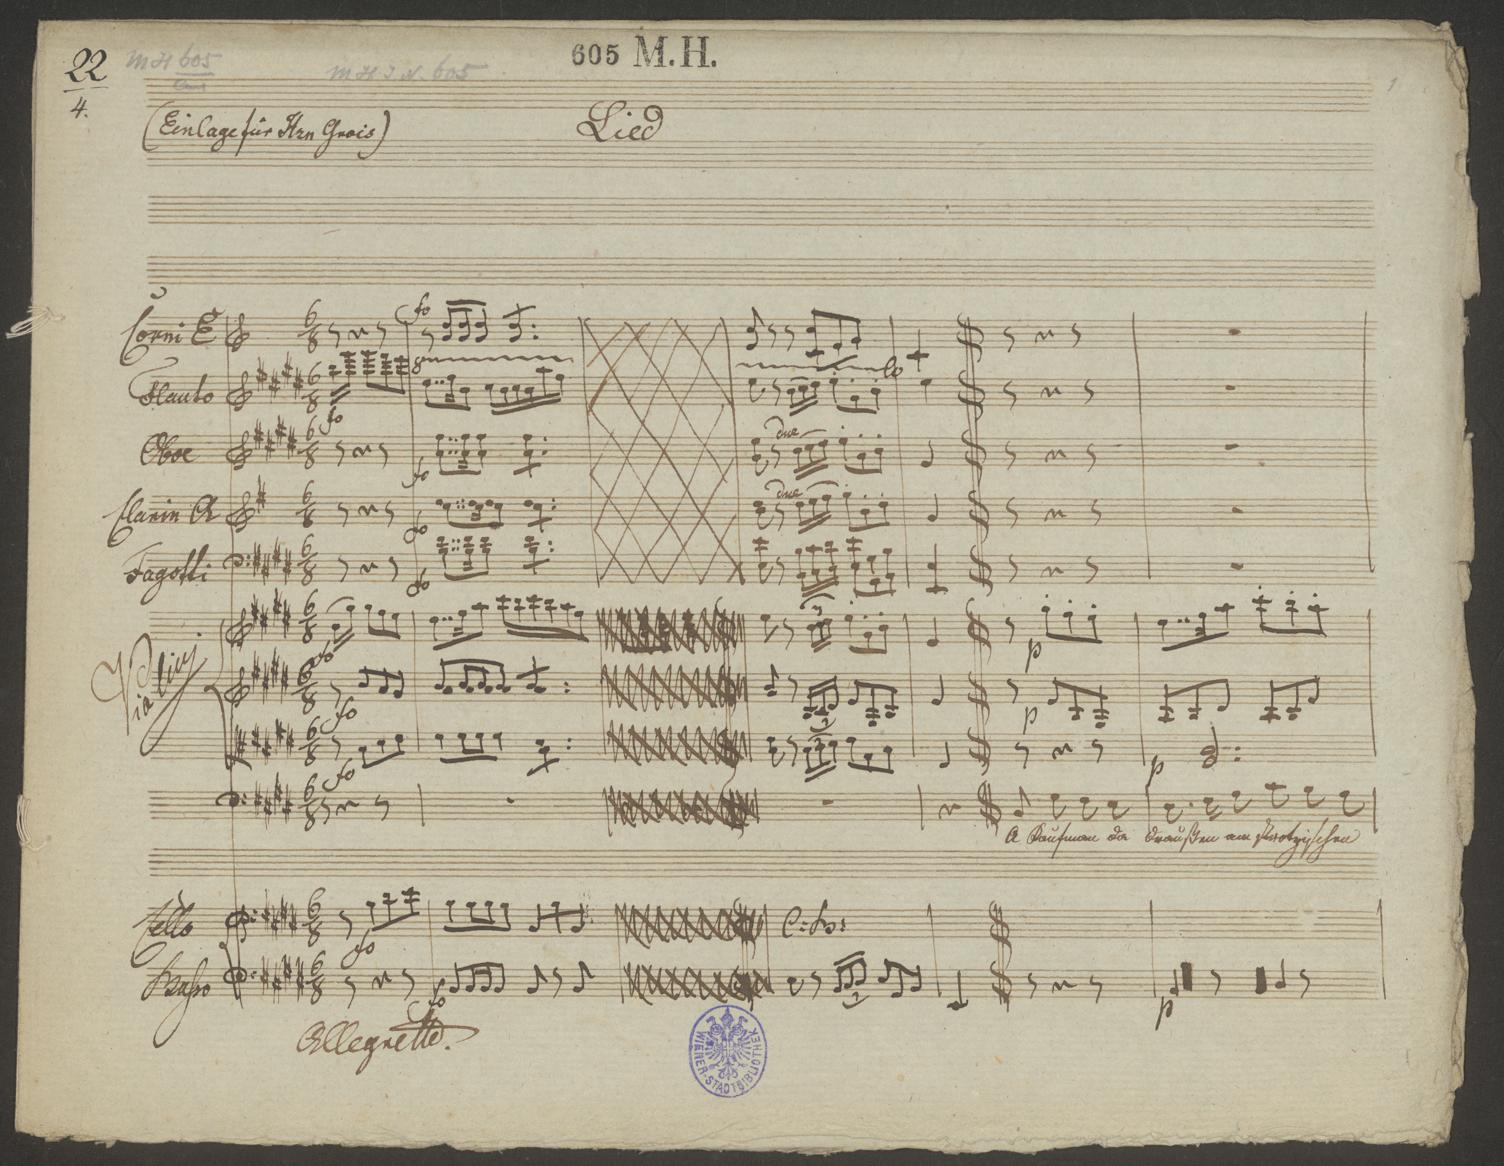 22
4.
MH 605
MH I.N. 605
605 M.H.
1
(Einlage für Hrn Grois)
Lied
Corni E
Flauto
Oboe
Clarin A
Fagotti
Violini
Cello
Basso
6 8
fo
8
due
due
lo
p
C: B:
A Kaufman da draußen am
Allegretto.
WIENER-STADTBIBLIOTHEK